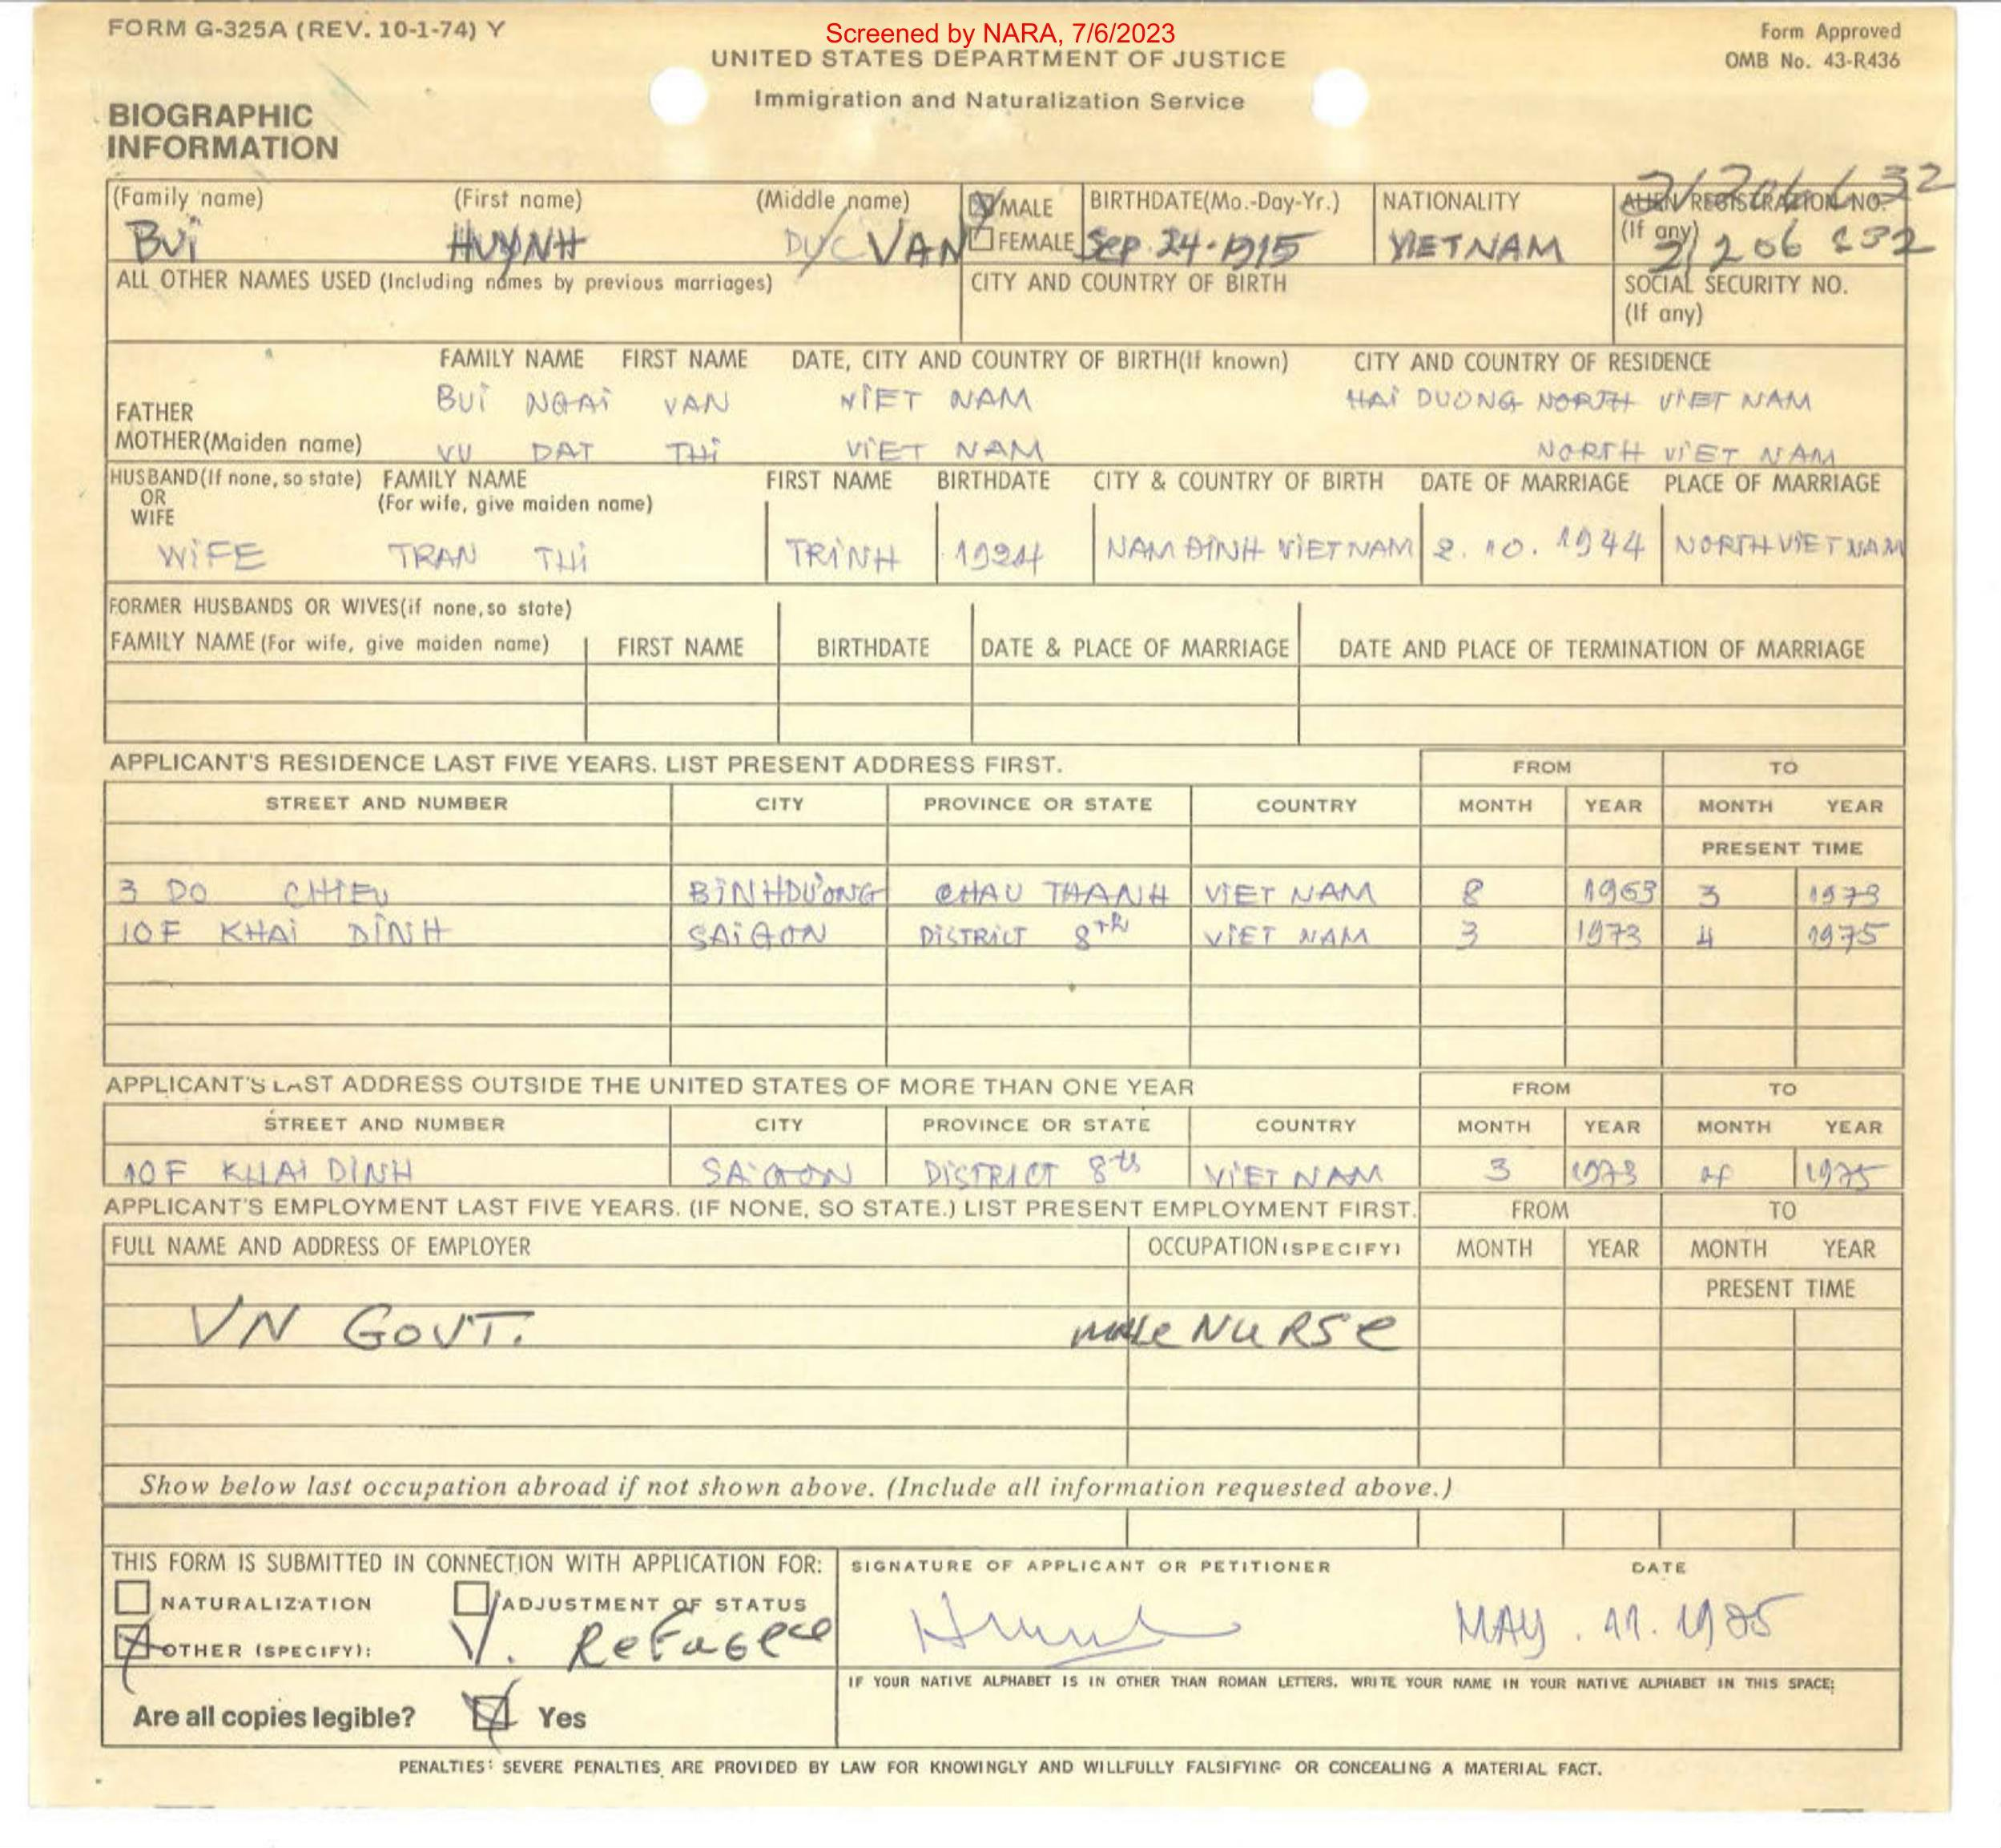 FORM G-325A (REV. 10-1-74) Y
Screened by NARA, 7/6/2023
Form Approved
OMB No. 43-R436
UNITED STATES DEPARTMENT OF JUSTICE
Immigration and Naturalization Service
BIOGRAPHIC
INFORMATION
(Family name) (First name) (Middle name) MALE BIRTHDATE(Mo.-Day-Yr.) NATIONALITY ALIEN REGISTRATION NO.
(If any)
BUI HUYNH VAN FEMALE Sep. 24-1915 VIETNAM
ALL OTHER NAMES USED (Including names by previous marriages) CITY AND COUNTRY OF BIRTH SOCIAL SECURITY NO.
(If any)
FAMILY NAME FIRST NAME DATE, CITY AND COUNTRY OF BIRTH(If known) CITY AND COUNTRY OF RESIDENCE
FATHER BUI NGAI VAN VIET NAM HAI DUONG NORTH VIET NAM
MOTHER(Maiden name) VU DAT THI VIET NAM NORTH VIET NAM
HUSBAND(If none, so state) FAMILY NAME FIRST NAME BIRTHDATE CITY & COUNTRY OF BIRTH DATE OF MARRIAGE PLACE OF MARRIAGE
OR (For wife, give maiden name)
WIFE
WIFE TRAN THI TRINH 1924 NAM ĐINH VIETNAM 2.10.1944 NORTH VIETNAM
FORMER HUSBANDS OR WIVES(if none,so state)
FAMILY NAME (For wife, give maiden name) FIRST NAME BIRTHDATE DATE & PLACE OF MARRIAGE DATE AND PLACE OF TERMINATION OF MARRIAGE
APPLICANT'S RESIDENCE LAST FIVE YEARS. LIST PRESENT ADDRESS FIRST. FROM TO
STREET AND NUMBER CITY PROVINCE OR STATE COUNTRY MONTH YEAR MONTH YEAR
PRESENT TIME
3 DO CHIEU BINHDUONG CHAU THANH VIET NAM 8 1963 3 1973
10F KHAI DINH SAIGON DISTRICT 8TH VIET NAM 3 1973 4 1975
APPLICANT'S LAST ADDRESS OUTSIDE THE UNITED STATES OF MORE THAN ONE YEAR FROM TO
STREET AND NUMBER CITY PROVINCE OR STATE COUNTRY MONTH YEAR MONTH YEAR
10F KHAI DINH SAIGON DISTRICT 8th VIET NAM 3 1973 4 1975
APPLICANT'S EMPLOYMENT LAST FIVE YEARS. (IF NONE, SO STATE.) LIST PRESENT EMPLOYMENT FIRST. FROM TO
FULL NAME AND ADDRESS OF EMPLOYER OCCUPATION (SPECIFY) MONTH YEAR MONTH YEAR
PRESENT TIME
VN GOVT. male NURSe
Show below last occupation abroad if not shown above. (Include all information requested above.)
THIS FORM IS SUBMITTED IN CONNECTION WITH APPLICATION FOR: SIGNATURE OF APPLICANT OR PETITIONER DATE
NATURALIZATION ADJUSTMENT OF STATUS
OTHER (SPECIFY): V. Refugee MAY. 11. 1975
IF YOUR NATIVE ALPHABET IS IN OTHER THAN ROMAN LETTERS, WRITE YOUR NAME IN YOUR NATIVE ALPHABET IN THIS SPACE:
Are all copies legible? Yes
PENALTIES: SEVERE PENALTIES ARE PROVIDED BY LAW FOR KNOWINGLY AND WILLFULLY FALSIFYING OR CONCEALING A MATERIAL FACT.